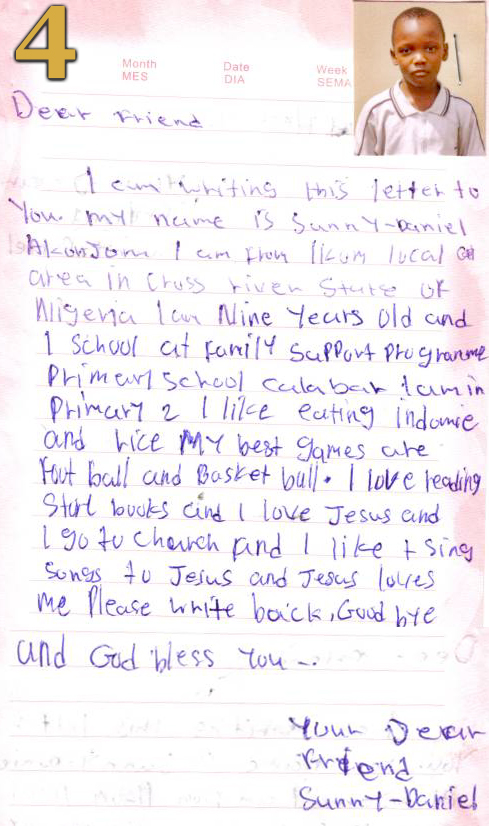 4
Month Date Week
MES DIA SEMA
Dear Friend
I am writing this letter to
You. my name is Sunny-Daniel
Akonjom I am from Ikom local
area in Cross river State of
Nigeria I am Nine Years old and
I school at family Support Programme
Primary School calabar I am in
Primary 2 I like eating indomie
and rice MY best games are
Foot ball and Basket ball. I love reading
Story books and I love Jesus and
I go to church and I like t sing
songs to Jesus and Jesus loves
me Please write back, Good bye
and God bless You -.
Your Dear
Friend
Sunny-Daniel